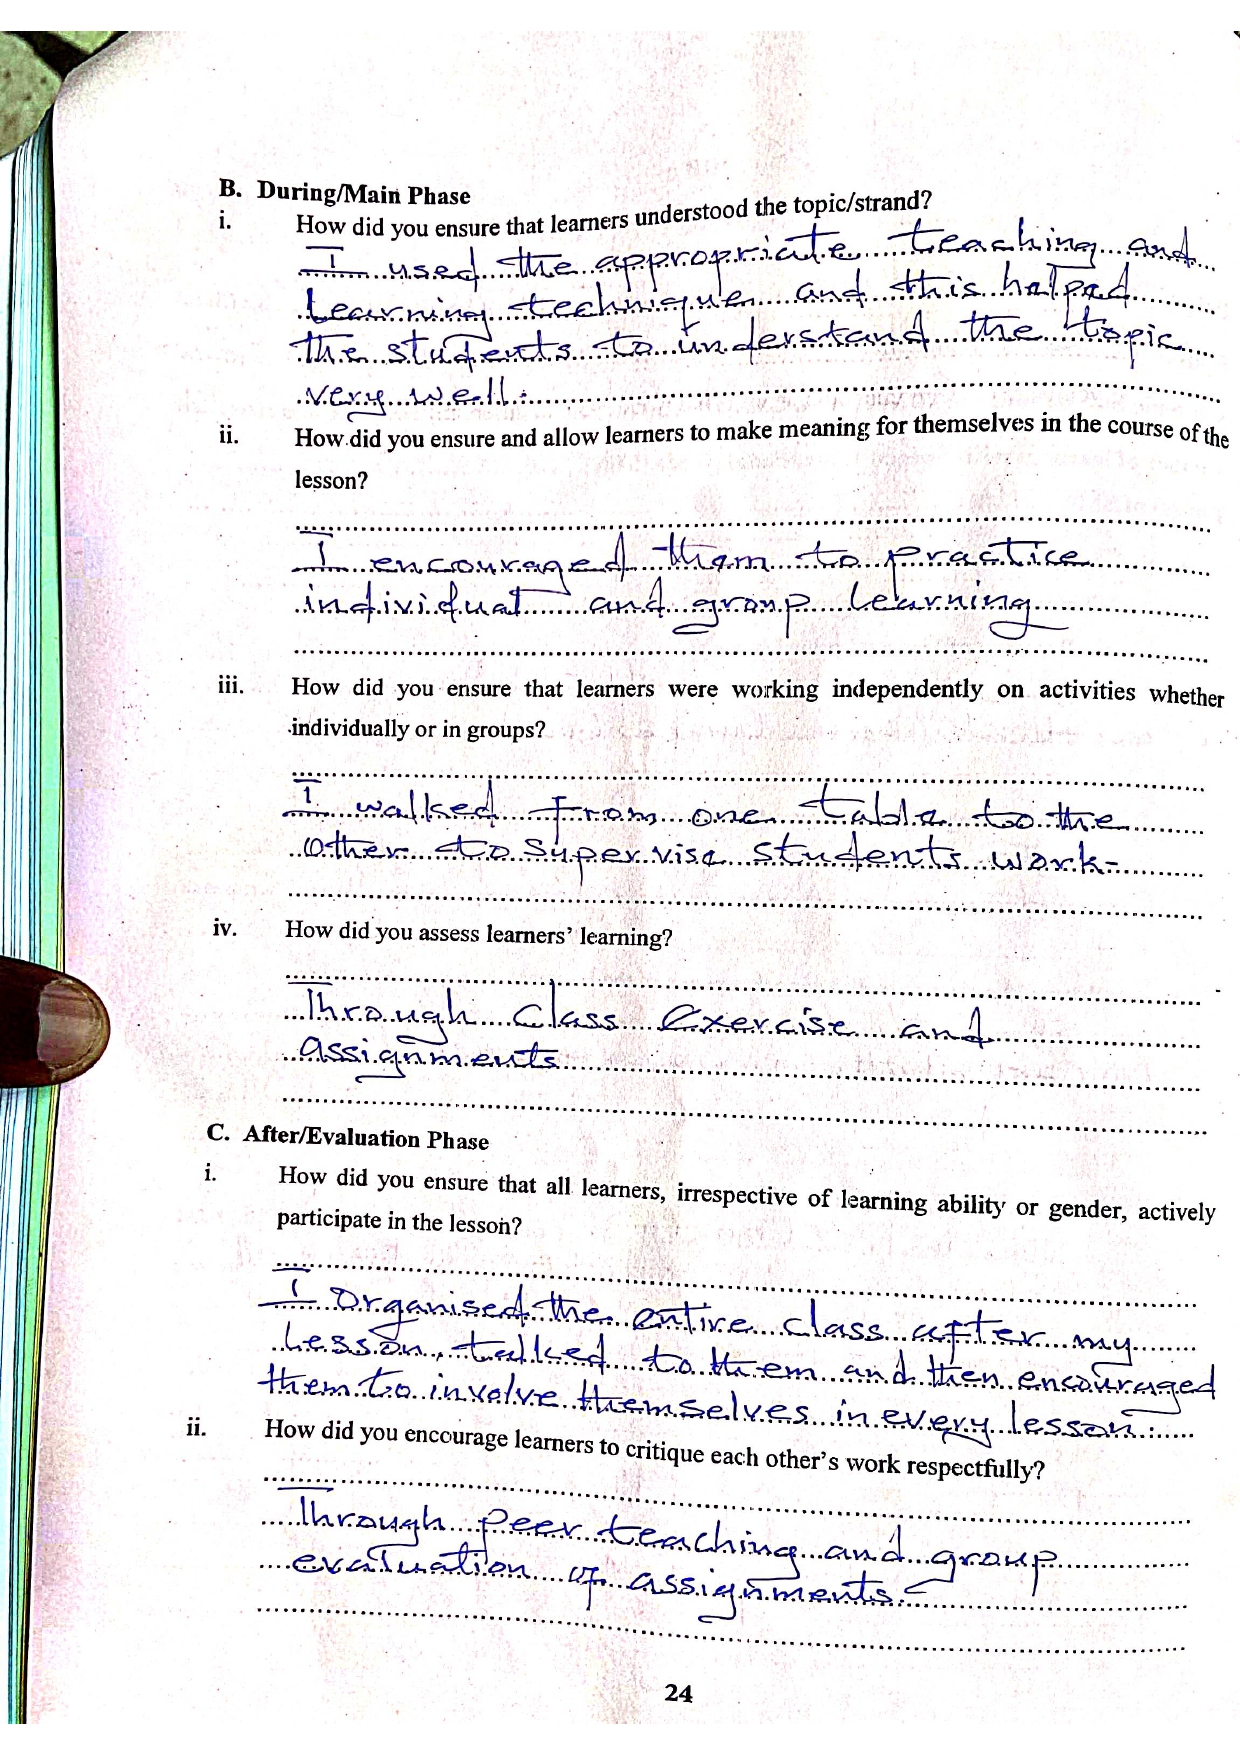 B. During/Main Phase
i. How did you ensure that learners understood the topic/strand?
I used the appropriate teaching and
Learning technique and this helped
the students to understand the topic
very well.
ii. How did you ensure and allow learners to make meaning for themselves in the course of the
lesson?
I encouraged them to practice
individual and group learning
iii. How did you ensure that learners were working independently on activities whether
individually or in groups?
I walked from one table to the
other to supervise students work-
iv. How did you assess learners' learning?
Through class exercise and
assignments
C. After/Evaluation Phase
i. How did you ensure that all learners, irrespective of learning ability or gender, actively
participate in the lesson?
I Organised the entire class after my
Lesson, talked to them and then encouraged
them to involve themselves in every lesson.
ii. How did you encourage learners to critique each other's work respectfully?
Through peer teaching and group
evaluation of assignments.
24